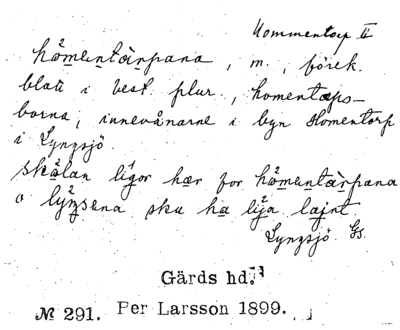 Kommentorp II
hömentàrpana, m., förek.
blott i best. plur., homentorps-
borna, innevånarne i byn Homentorp
i Lyngsjö
skålan ligor hær for hömentàrpana
o lýngsena sku ha lija lajnt
Lyngsjö Gs.
Gärds hd.
№ 291. Per Larsson 1899.